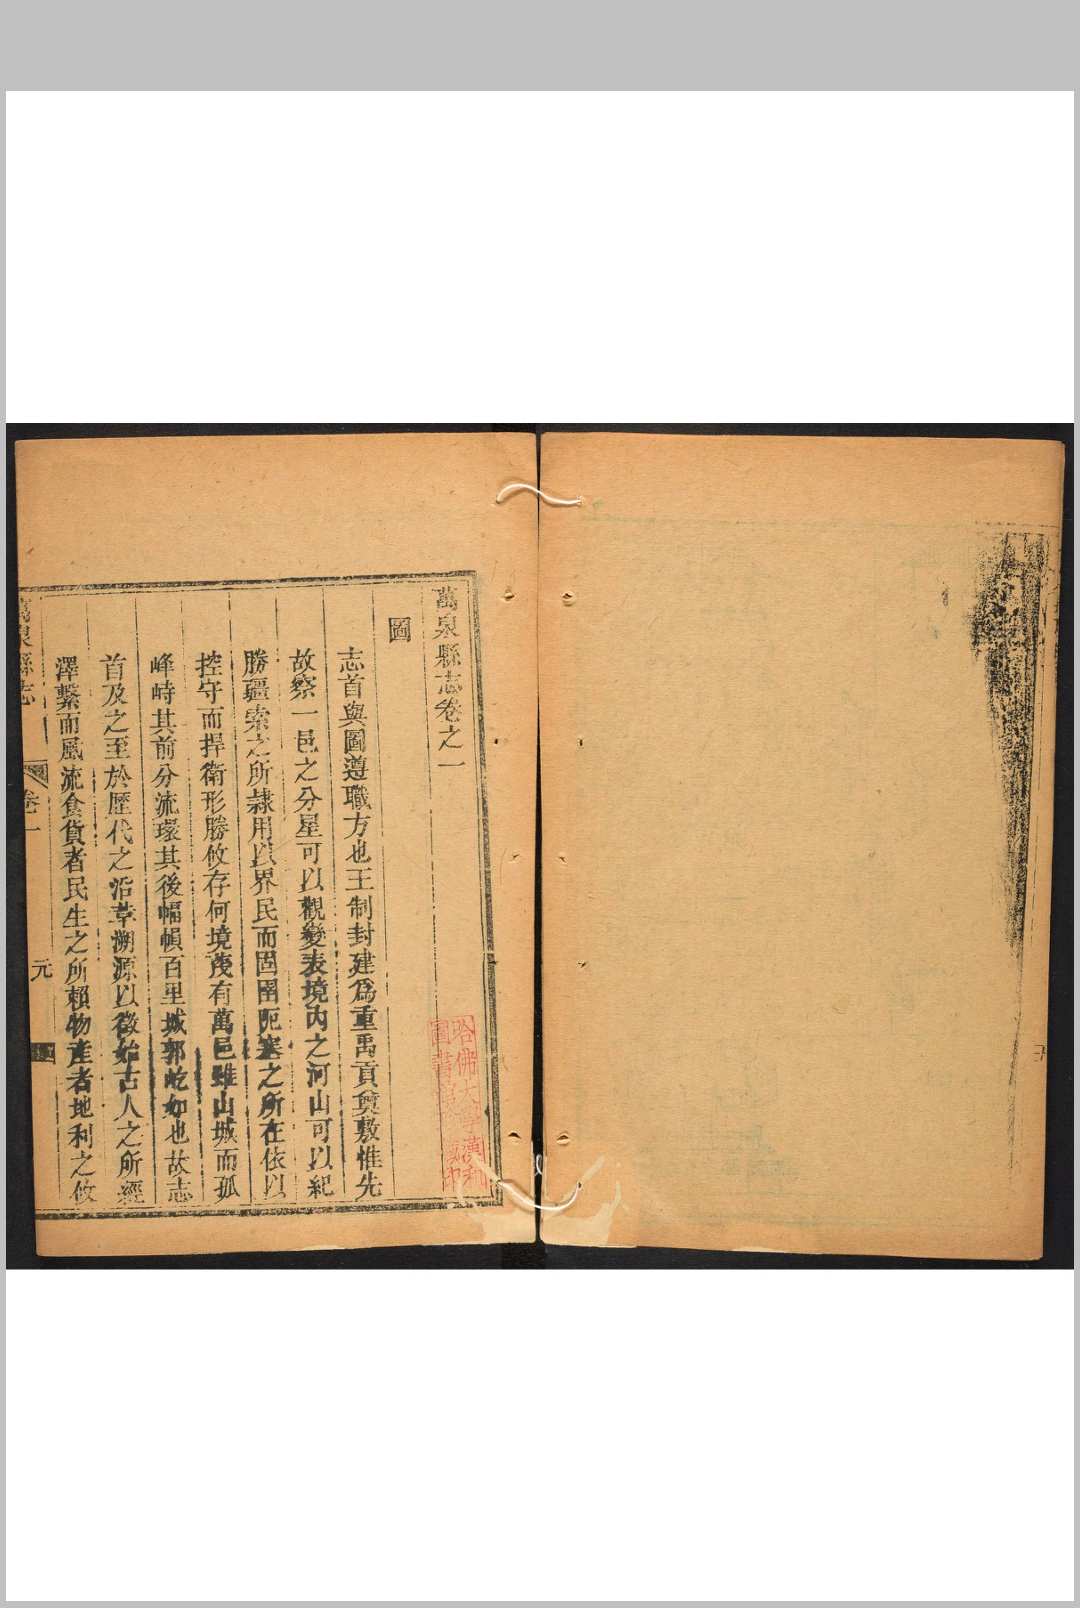 萬泉縣志卷之一
圖
志首輿圖遵職方也王制封建爲重禹貢奠敷惟先
故察一邑之分星可以觀變表境內之河山可以紀
勝疆索之所隸用以界民而固圉阨塞之所在依以
控守而捍衛形勝攸存何境蔑有萬邑雖山城而孤
峰峙其前分流環其後幅幀百里城郭屹如也故志
首及之至於歷代之沿革溯源以徵始古人之所經
澤繫而風流食貨者民生之所賴物產者地利之攸
萬泉縣志
卷一
元
哈佛大學漢和
圖書館